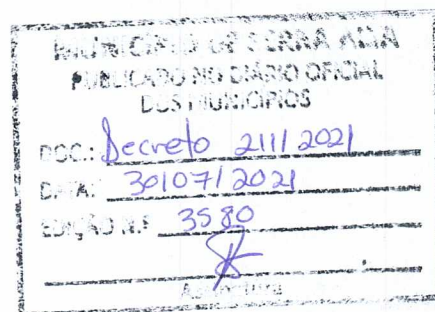 MUNICÍPIO DE SERRA ALTA
PUBLICADO NO DIÁRIO OFICIAL
DOS MUNICÍPIOS
DOC.: Decreto 211/2021
DATA: 30/07/2021
EDIÇÃO N.º 3580
Assinatura